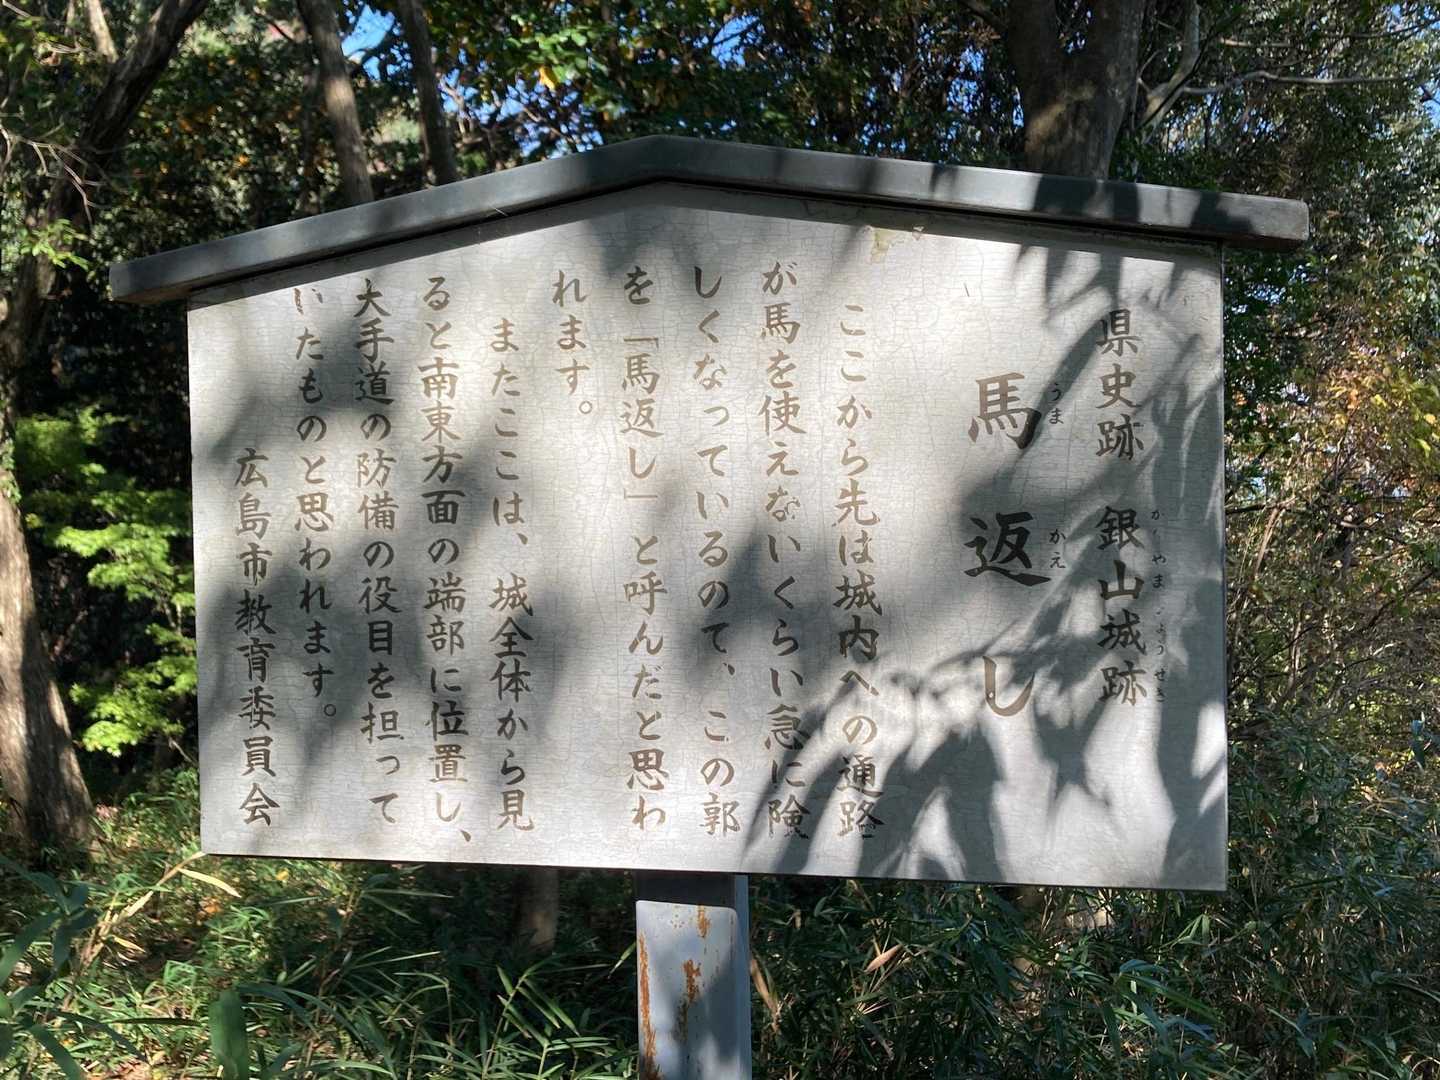 県史跡 銀山城跡
馬返し
うま かえ
ここから先は城内への通路
が馬を使えないくらい急に険
しくなっているので、この郭
を「馬返し」と呼んだと思わ
れます。
またここは、城全体から見
ると南東方面の端部に位置し、
大手道の防備の役目を担って
いたものと思われます。
広島市教育委員会